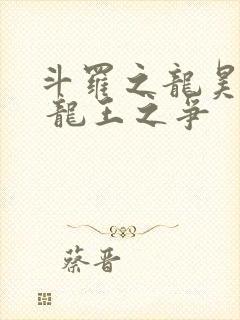 斗羅之龍昊
龍王之爭
蔡晋